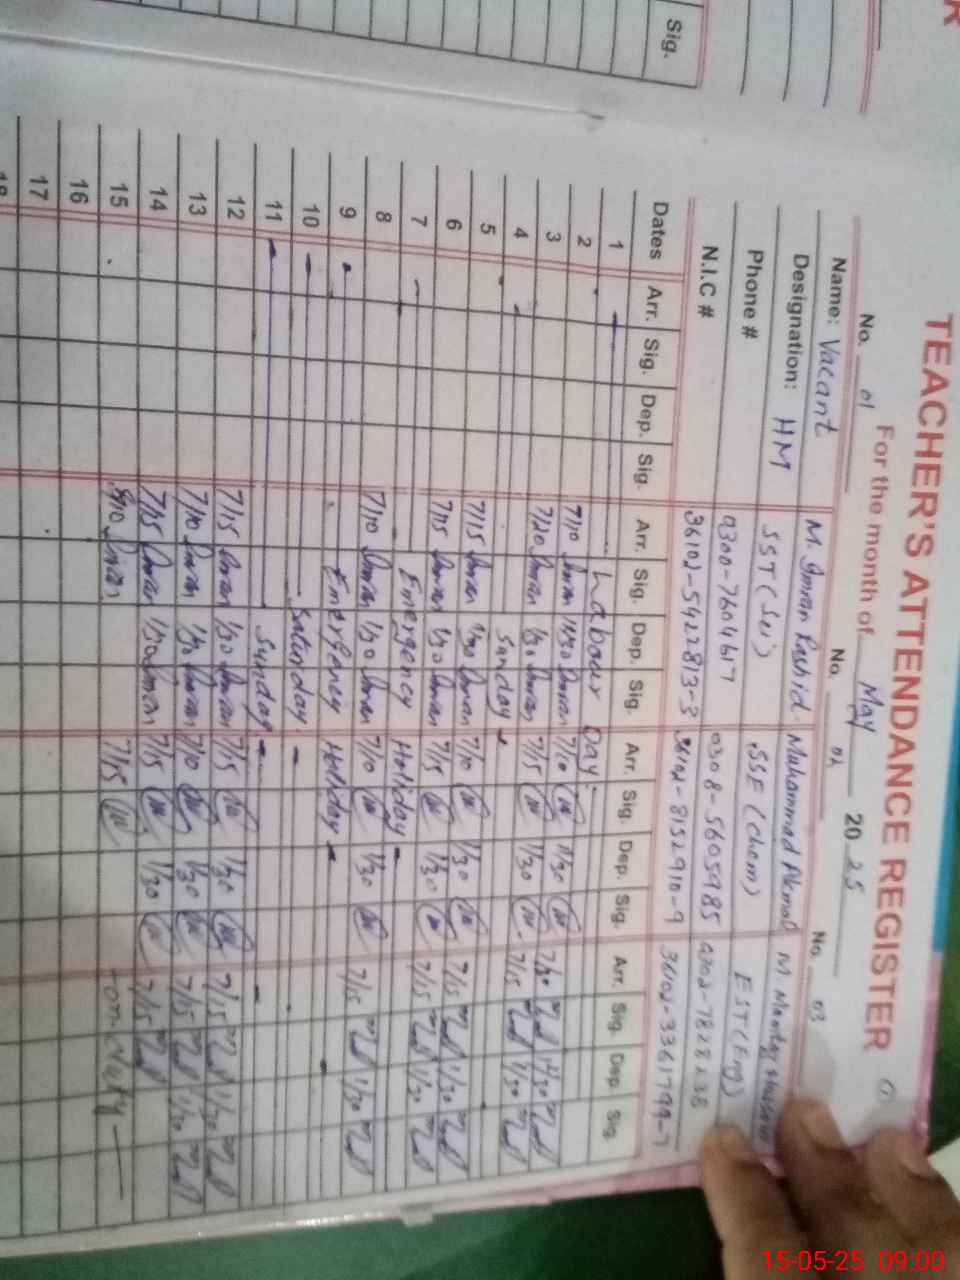 Sig.
TEACHER'S ATTENDANCE REGISTER
For the month of May 2025
No. 01 No. 02 No. 03
Name: Vacant M. Imran Rashid Muhammad Akmal M
Designation: HM SST (Sci) SSE (Chem) EST (Eng)
Phone # 0300-7604617 0308-5605985 0302-7828238
N.I.C # 36102-5422813-3 36102-8152910-9
Dates Arr. Sig. Dep. Sig. Arr. Sig. Dep. Sig. Arr. Sig. Dep. Sig. Arr. Sig. Dep. Sig.
1 Labour Day
2 7/10 Imran 1/30 Imran 7/10 1/30
3 7/20 Imran 1/30 Imran 7/15 1/30 7/15 1/30
4 Sunday
5 7/15 Imran 1/30 Imran 7/10 1/30 7/15 1/30
6 7/15 Imran 1/30 Imran 7/15 1/30 7/15 1/30
7 Emergency Holiday
8 7/10 Imran 1/30 Imran 7/10 1/30 7/15 1/30
9 Emergency Holiday
10 Saturday
11 Sunday
12 7/15 Imran 1/30 Imran 7/15 1/30 7/15 1/30
13 7/10 Imran 1/30 Imran 7/10 1/30 7/15 1/30
14 7/15 Imran 1/30 Imran 7/15 1/30 7/15
15 Imran 7/15 on duty
16
17
18
15-05-25 09:00